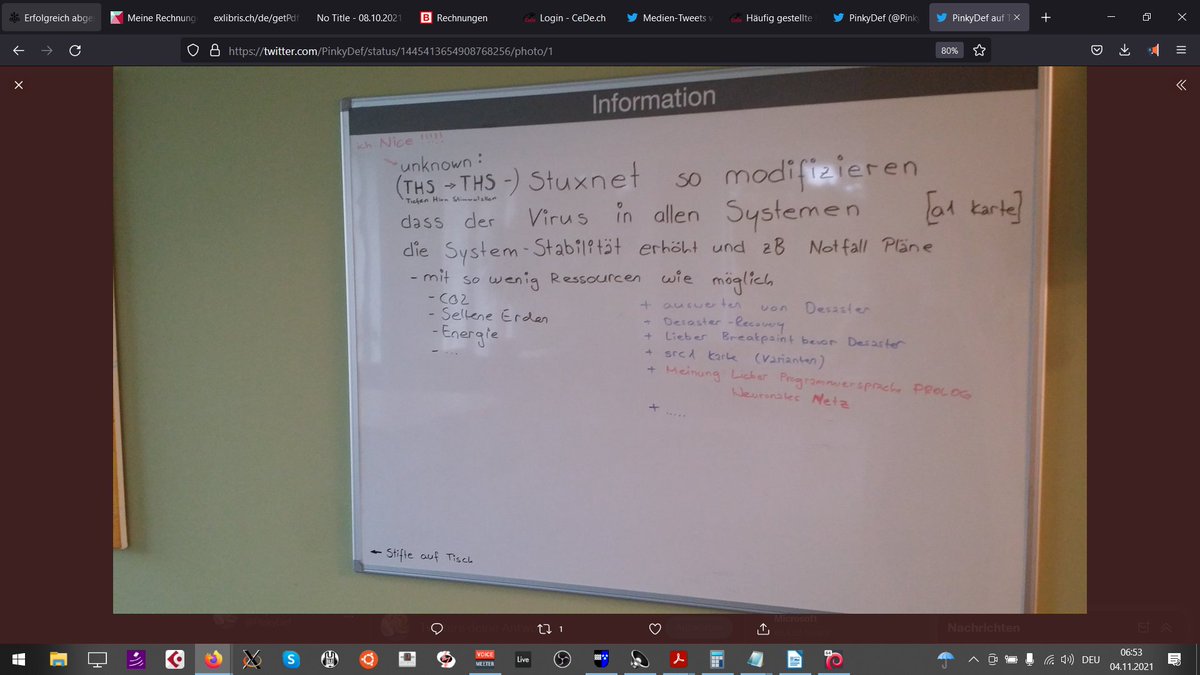 Erfolgreich abge
Meine Rechnung
exlibris.ch/de/getPdf
No Title - 08.10.2021
Rechnungen
Login - CeDe.ch
Medien-Tweets v
Häufig gestellte
PinkyDef (@Pink
PinkyDef auf T
https://twitter.com/PinkyDef/status/1445413654908768256/photo/1
80%
Information
Ich Nice !!!!!
unknown:
(THS → THS -) Stuxnet so modifizieren
Tiefen Hirn Stimulation
dass der Virus in allen Systemen [a1 Karte]
die System-Stabilität erhöht und zB Notfall Pläne
- mit so wenig Ressourcen wie möglich
- CO2
- Seltene Erden
- Energie
- ...
+ auswerten von Desaster
+ Desaster-Recovery
+ Lieber Breakpoint bevor Desaster
+ src1 Karte (Varianten)
+ Meinung Lieber Programmiersprache PROLOG
Neuronales Netz
+ .....
← Stifte auf Tisch
1
Microsoft
Nachrichten
VOICE
MEETER
Live
DEU
06:53
04.11.2021